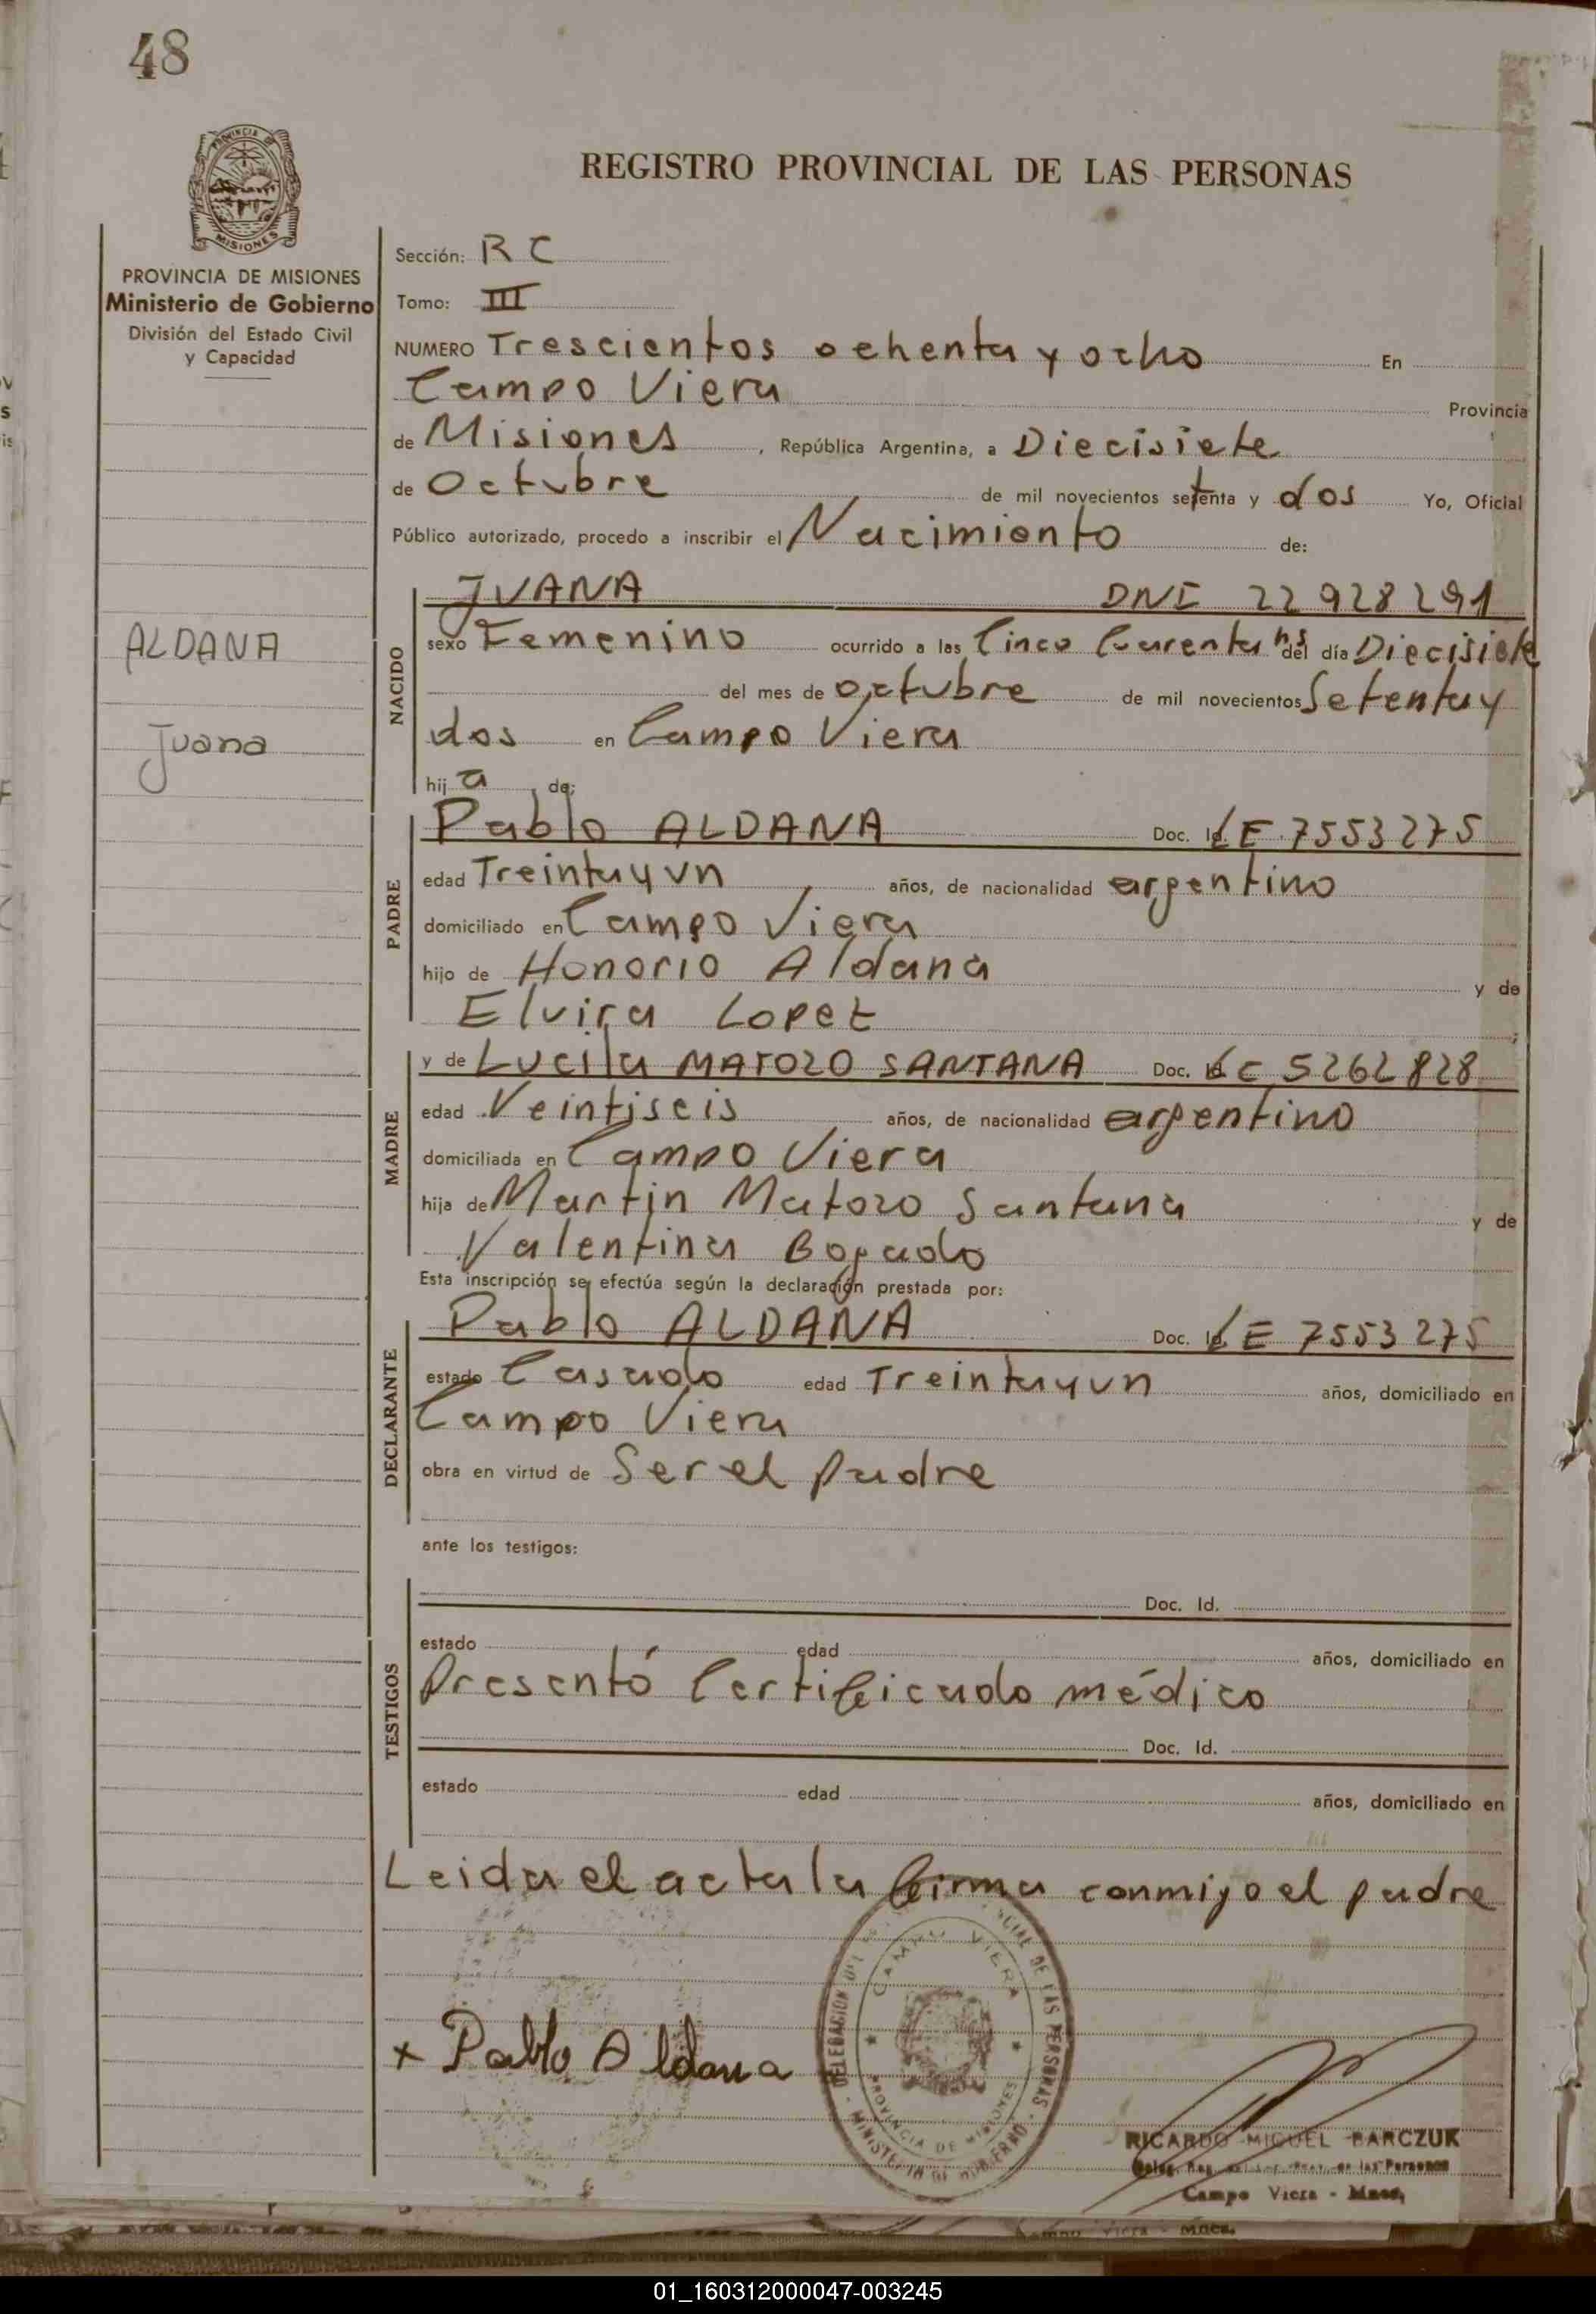 48
PROVINCIA DE
MISIONES
REGISTRO PROVINCIAL DE LAS PERSONAS
PROVINCIA DE MISIONES
Ministerio de Gobierno
División del Estado Civil
y Capacidad
ALDANA
Juana
Sección: RC
Tomo: III
NUMERO Trescientos ochenta y ocho En
Campo Viera Provincia
de Misiones, República Argentina, a Diecisiete
de Octubre de mil novecientos setenta y dos Yo, Oficial
Público autorizado, procedo a inscribir el Nacimiento de:
NACIDO
JUANA DNI 22 928 291
sexo Femenino ocurrido a las Cinco Cuarenta hs del día Diecisiete
del mes de octubre de mil novecientos Setenta y
dos en Campo Viera
hija de:
PADRE
Pablo ALDANA Doc. Id. LE 7553275
edad Treinta y un años, de nacionalidad argentino
domiciliado en Campo Viera
hijo de Honorio Aldana y de
Elvira Lopez;
MADRE
y de Lucila MATOZO SANTANA Doc. Id. LC 5262828
edad Veintiseis años, de nacionalidad argentino
domiciliada en Campo Viera
hija de Martin Matozo Santana y de
Valentina Bogado
Esta inscripción se efectúa según la declaración prestada por:
DECLARANTE
Pablo ALDANA Doc. Id. LE 7553275
estado Casado edad Treinta y un años, domiciliado en
Campo Viera
obra en virtud de Ser el padre
ante los testigos:
TESTIGOS
Doc. Id.
estado edad años, domiciliado en
Presentó Certificado médico
Doc. Id.
estado edad años, domiciliado en
Leida el acta la firma conmigo el padre
x Pablo Aldana
DELEGACION DE LAS PERSONAS
CAMPO VIERA
PROVINCIA DE MISIONES
MINISTERIO DE GOBIERNO
RICARDO MIGUEL BARCZUK
de las Personas
Campo Viera - Mnes.
Campo Viera - Mnes.
01_160312000047-003245